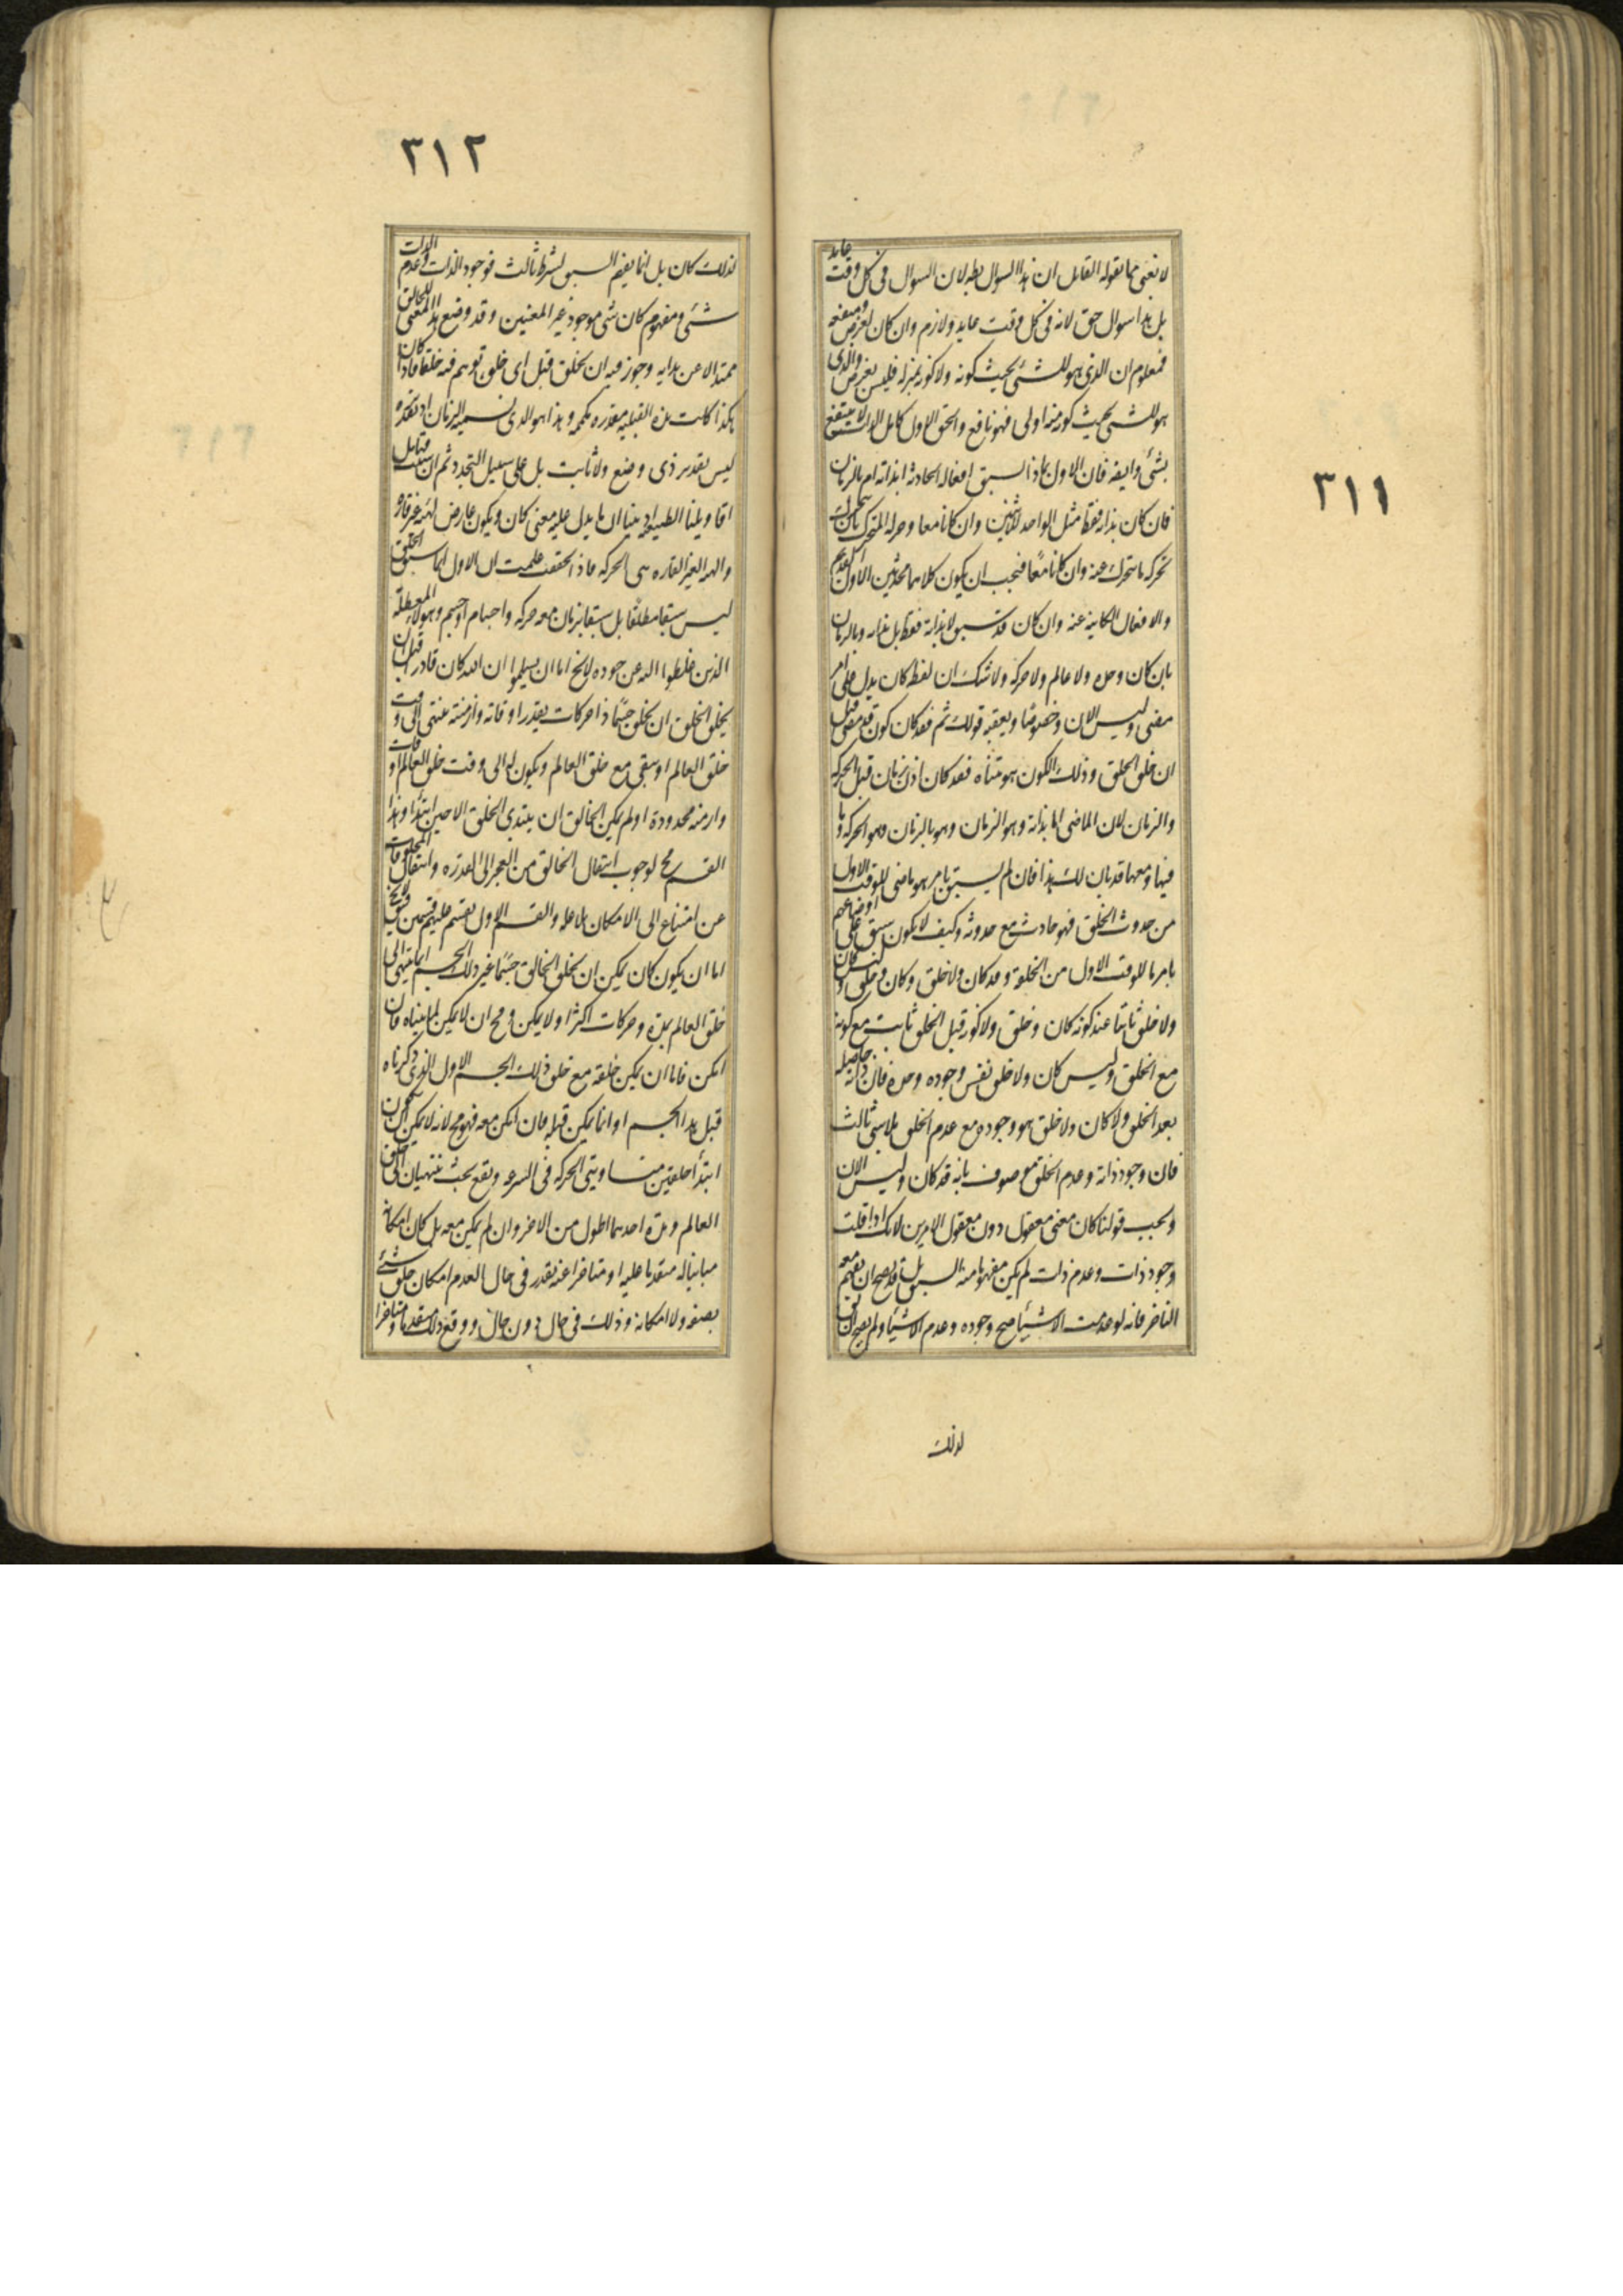 ٣١١
لا نعنى بما يقوله القايل ان هذا السوال بط لان السوال فى كل وقت عايد
بل هذا سوال حق لانه فى كل وقت عايد ولازم وان كان لغرض ومنفعه
فمعلوم ان الذى هو للشئ بحيث كونه ولا كونه بمنزله فليس بغرض والذى
هو للشئ بحيث كونه منه اولى فهو نافع والحق الاول كامل الذات لا ينتفع
بشئ وايضه فان الاول بماذا سبق افعاله الحادثه ابذاته ام بالزمان
فان كان بذاته فقط مثل الواحد للاثنين وان كانا معا وحركه المتحرك بان
تحركه ما تتحرك عنه وان كانا معًا فيجب ان يكون كلاهما محدثين الاول القديم
والافعال الكاينه عنه وان كان قد سبق لا بذاته فقط بل بذاته وبالزمان
بان كان وحده ولا عالم ولا حركه ولا شك ان لفظه كان يدل على امر
مضى وليس الان وخصوصًا ويعقبه قولك ثم فقد كان كون قد مضى قبل
ان خلق الخلق وذلك الكون هو متناه فقد كان اذن زمان قبل الحركه
والزمان لان الماضى اما بذاته وهو الزمان وهو بالزمان وهو الحركه وما
فيها ومعها قد بان لك هذا فان لم يسبق بامر هو ماضى للوقت الاول
من حدوث الخلق فهو حادث مع حدوثه وكيف لا يكون سبق على اوضاعهم
بامر ما للوقت الاول من الخلقة وقد كان ولا خلق وكان وخلق وليس كان
ولا خلق ثابتا عند كونه كان وخلق ولا كونه قبل الخلق ثابت مع كونه
مع الخلق وليس كان ولا خلق نفس وجوده وحده فان ذاته حاصله
بعد الخلق ولا كان ولا خلق هو وجوده مع عدم الخلق بلا شئ ثالث
فان وجود ذاته وعدم الخلق موصوف بانه قد كان وليس الان
وتحت قولنا كان معنى معقول دون معقول الامرين لانك اذا قلت
وجود ذات وعدم ذات لم يكن مفهوما منه السبق بل قد يصح ان يفهم معه
التاخر فانه لو عدمت الاشيأ صح وجوده وعدم الاشيأ ولم يصح ان
لذلك
٣١٢
لذلك كان بل انما يفهم السبق بشرط ثالث فوجود الذات وعدم الذات
شئ ومفهوم كان شئ موجود غير المعنيين وقد وضع هذا المعنى للخالق
ممتدا لا عن بدايه وجوز فيه ان يخلق قبل اى خلق توهم فيه خلقا فاذا كان
هكذا كانت هذه القبليه مقدره مكممه وهذا هو الذى نسميه الزمان اذ تقديره
ليس تقدير ذى وضع ولا ثابت بل على سبيل التجدد ثم ان شئت فتامل
اقاويلنا الطبيعيه اذ بينا ان ما يدل عليه معنى كان ويكون عارض لهيئه غير قاره
والهيه الغير القاره هى الحركه فاذا تحققت علمت ان الاول انما سبق الخلق
ليس سبقا مطلقا بل سبقا بزمان معه حركه واجسام او جسم وهولاء المعطله
الذين عطلوا الله عن جوده لا يخ اما ان يسلموا ان الله كان قادرا قبل ان
يخلق الخلق ان يخلق جسمًا ذا حركات يقدر اوقاته وازمنته تنتهى الى وقت
خلق العالم او يبقى مع خلق العالم ويكون له الى وقت خلق العالم اوقات
وازمنه محدودة او لم يكن الخالق ان يبتدى الخلق الا حين ابتدأ وهذا
القسم مح لوجوب انتقال الخالق من العجز الى القدره وانتقال المخلوقات
من امتناع الى الامكان بلا عله والقسم الاول يقسم عليهم قسمين فيق لا يخ
اما ان يكون كان يمكن ان يخلق الخالق جسمًا غير ذلك الجسم انما ينتهى الى
خلق العالم بمدة وحركات اكثر او لا يمكن ومح ان لا يمكن لما بيناه فان
امكن فاما ان يمكن خلقه مع خلق ذلك الجسم الاول الذى ذكرناه
قبل هذا الجسم او انما يمكن قبله فان امكن معه فهو مح لانه لا يمكن ان يكون
ابتدأ خلقين متساويى الحركه فى السرعه ويقع بحيث ينتهيان الى خلق
العالم ومدة احدهما اطول من الاخر وان لم يمكن معه بل كان امكانه
مباينا له متقدما عليه او متاخرا عنه تقدر فى حال العدم امكان خلق شئ
بصفه ولا امكانه وذلك فى حال دون حال ووقع ذلك متقدما ومتاخرا